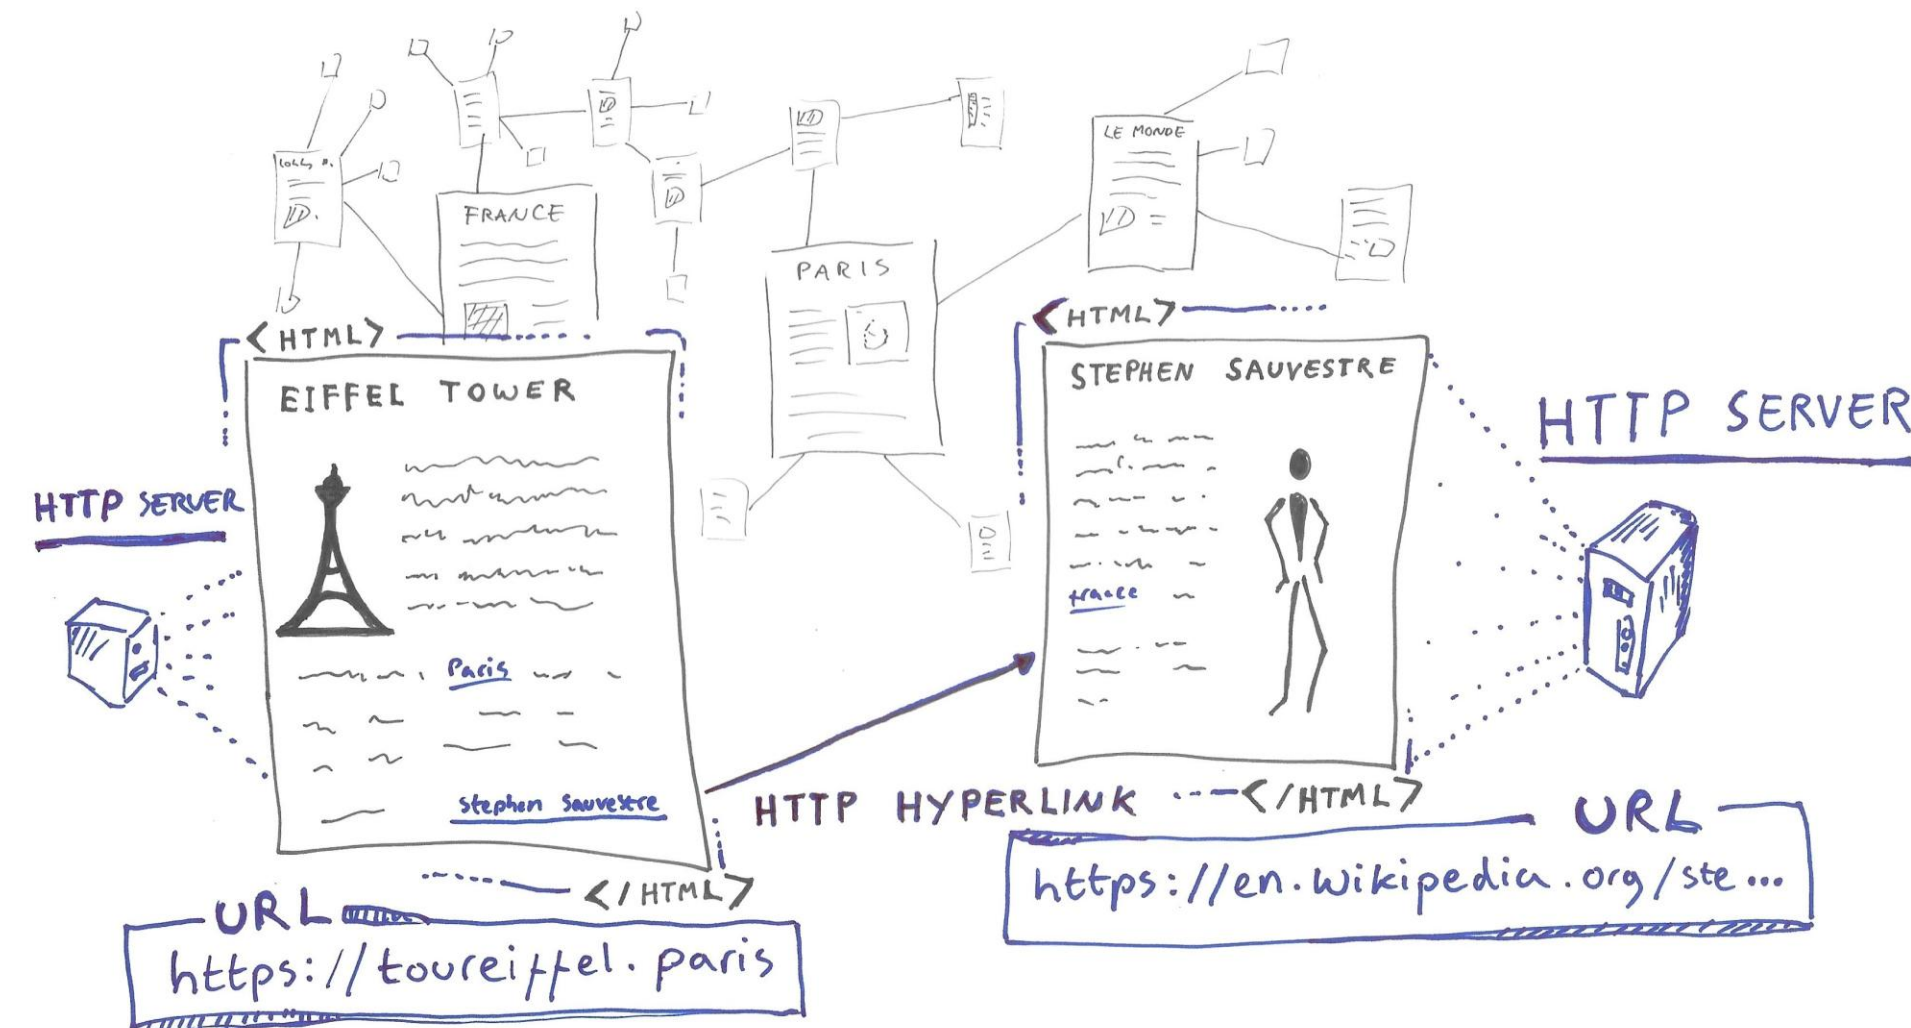 FRANCE
PARIS
LE MONDE
<HTML>
EIFFEL TOWER
HTTP SERVER
Paris
Stephen Sauvestre
</HTML>
URL
https://toureiffel.paris
HTTP HYPERLINK
<HTML>
STEPHEN SAUVESTRE
france
</HTML>
HTTP SERVER
URL
https://en.wikipedia.org/ste...